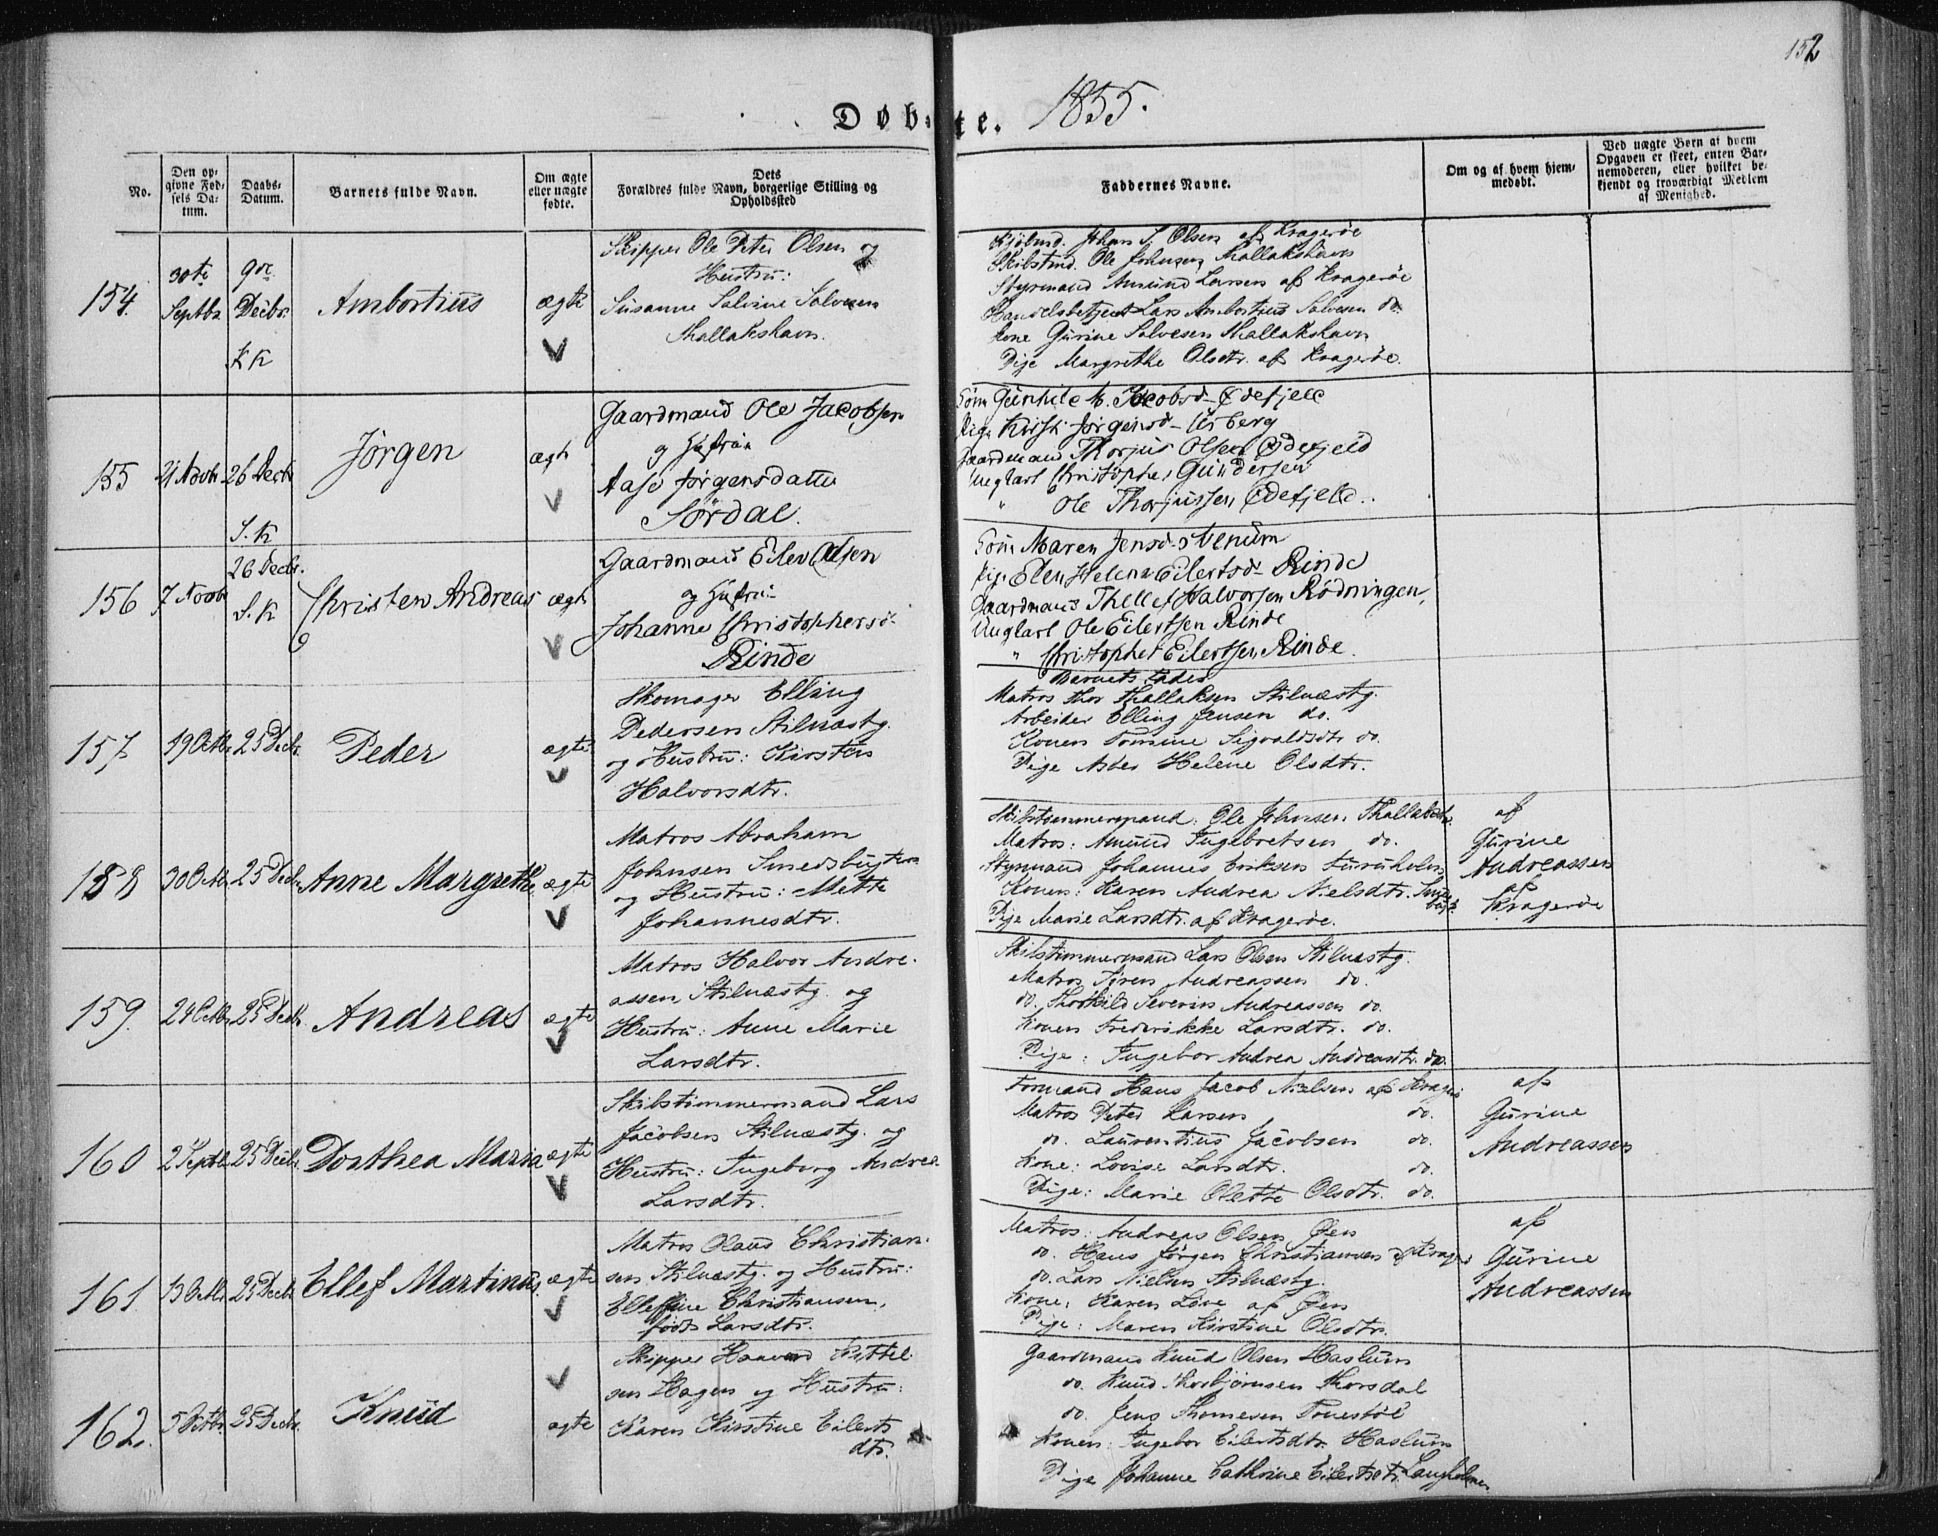 152
Døbte. 1855.
No.
Den op-
givne Fød-
sels Da-
tum.
Daabs-
Datum.
Barnets fulde Navn.
Om ægte
eller uægte
fødte.
Dets
Forældres fulde Navn, borgerlige Stilling og
Opholdssted
Faddernes Navne.
Om og af hvem hjem-
medøbt.
Ved uægte Børn af hvem
Opgaven er skeet, enten Bar-
nemoderen, eller hvilket be-
kjendt og troværdigt Medlem
af Menighed.
154.
30te
Septbr
9de
Decbr.
KK
Ambortius
ægte
Skipper Ole Peter Olsen og
Hustru:
Susanne Salvine Salvesen
Thallakshavn.
Johan S. Olsen af Kragerøe
Skibstmd. Ole Johnsen, Thallakshavn
Styrmand Amund Larsen af Kragerøe
Handelsbetjent Lars Ambortius Salvesen do.
Kone Gurine Salvesen Thallakshavn
Pige Margrethe Olsdtr. af Kragerøe.
155
21 Novbr
26 Decbr
S.K
Jørgen
ægte
Gaardmand Ole Jacobsen
og Hustru
Aase Jørgensdatter
Sørdal.
Gunhild M. Jacobsd- Ødefjeld
Pige Kirsti Jørgensd-
Gaardmand Thorjus Olsen Ødefjeld
Ungkarl Christopher Gundersen
" Ole Thorjussen Ødefjeld.
156
7 Novbr
26 Decbr.
S.K
Christen Andreas
ægte
Gaardmand Eilert Olsen
og Hustru:
Johanne Christophersd-
Rinde
Maren Jensd-
Pige Elen Helena Eilertsd- Rinde
Gaardmand Thellef Halvorsen Rødningen,
Ungkarl Ole Eilertsen Rinde
" Christopher Eilertsen Rinde.
157
19 Octbr
25 Decbr.
Peder
ægte
Skomager Elling
Pedersen Stilnæstg.
og Hustru: Kirsten
Halvorsdtr.
Barnets Fader
Matros Thor Thallaksen Stilnæstg.
Arbeider Elling Jensen do.
Konen Tomine Sigvaldsdtr do.
Pige Helene Olsdtr.
158
30 Octbr.
25 Decbr
Anne Margrethe
ægte
Matros Abraham
Johnsen Smedsbugten
og Hustru: Mette
Johannesdtr.
Skibstømmermand: Ole Johnsen
Matros: Amund Ingebretsen do.
Styrmand Johannes Eriksen Furuholm
Konen: Karen Andrea Nielsdtr.
Pige Marie Larsdtr. af Kragerøe.
af
Gurine
Andreassen
af
Kragerøe
159.
24 Octbr
25 Decbr
Andreas
ægte
Matros Halvor Andre-
assen, Stilnæstg. og
Hustru: Anne Marie
Larsdtr.
Skibstømmermand Lars Olsen Stilnæstg.
Matros Søren Andreassen do.
do. Thorkild Severin Andreassen do.
Konen Frederikke Larsdtr. do.
Pige: Ingebor Andrea Andreasdtr. do.
160
2 Septbr
25 Decbr.
Dorthea Maria
ægte
Skibstimmermand Lars
Jacobsen Stilnæstg. og
Hustru: Ingeborg Andrea
Larsdtr.
Formand Hans Jacob Nielsen af
Matros Peter Larsen do.
do. Laurentius Jacobsen do.
Kone: Lovise Larsdtr. do.
Pige: Marie Olette Olsdtr. do.
af
Gurine
Andreassen
161
13 Octbr
25 Decbr
Ellef Martinus
ægte
Matros Olaus Christian-
sen Stilnæstg. og Hustru:
Elleffine Christiansen,
født Larsdtr.
Matros: Andreas Olsen Øen
do. Hans Jørgen Christiansen
do. Lars Nielsen Stilnæstg.
Kone: Karen Love af Øen
Pige: Maren Kirstine Olsdtr.
af
Gurine
Andreassen
162.
5 Octbr.
25 Decbr.
Knud
ægte
Skipper Haavord Kittel-
sen Hagen og Hustru:
Karen Kirstine Eilerts
dtr.
Gaardmand Knud Olsen Haslum
do. Knud Thorbjørnsen Thorsdal
do. Jens Thomesen
Konen: Ingebor Eilertsdtr. Haslum
Pige Johanne Cathrine Eilertsdtr. Langholmen